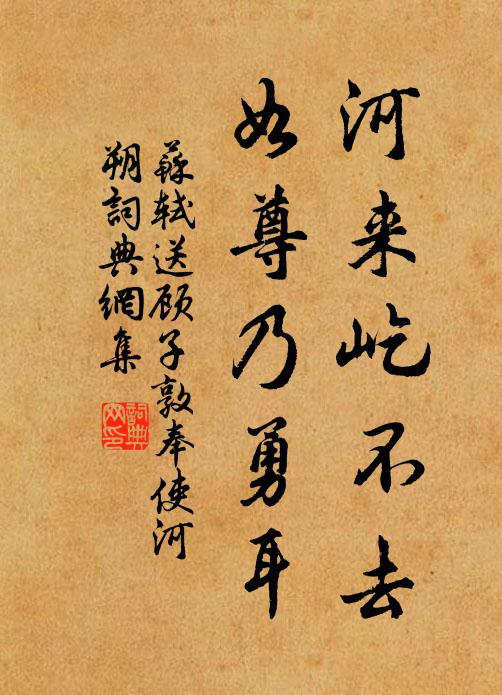 河来屹不去
如尊乃勇耳
蘇軾送顾子敦奉使河
朔詞典網集
詞典网印